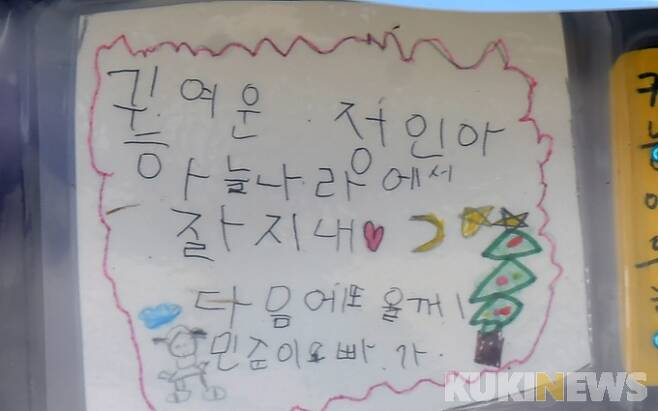 귀여운 정인아
하늘나라에서
잘지내♥
다음에또 올게!
민준이오빠.가.
KUKINEWS